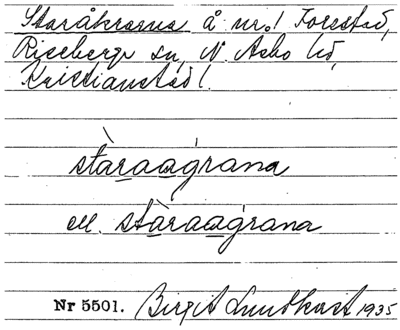 Staråkrarna å nr 1 Forestad,
Riseberga sn, N. Åsbo hd,
Kristianstad l.
stàraagrana
ell. stàraagrana
Nr 5501. Birgit Lundkvist 1935